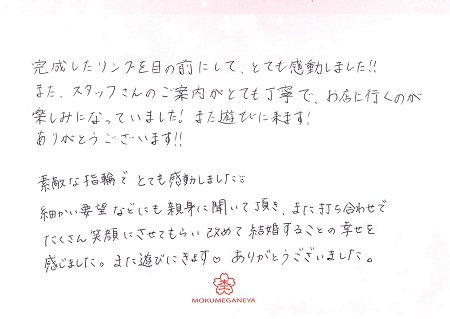 完成したリングを目の前にして、とても感動しました!!
また、スタッフさんのご案内がとても丁寧で、お店に行くのが
楽しみになっていました!また遊びに来ます!
ありがとうございます!!
素敵な指輪で とても感動しました
細かい要望などにも親身に聞いて頂き、また打ち合わせで
たくさん笑顔にさせてもらい改めて結婚することの幸せを
感じました。また遊びにきます♡ ありがとうございました。
MOKUMEGANEYA